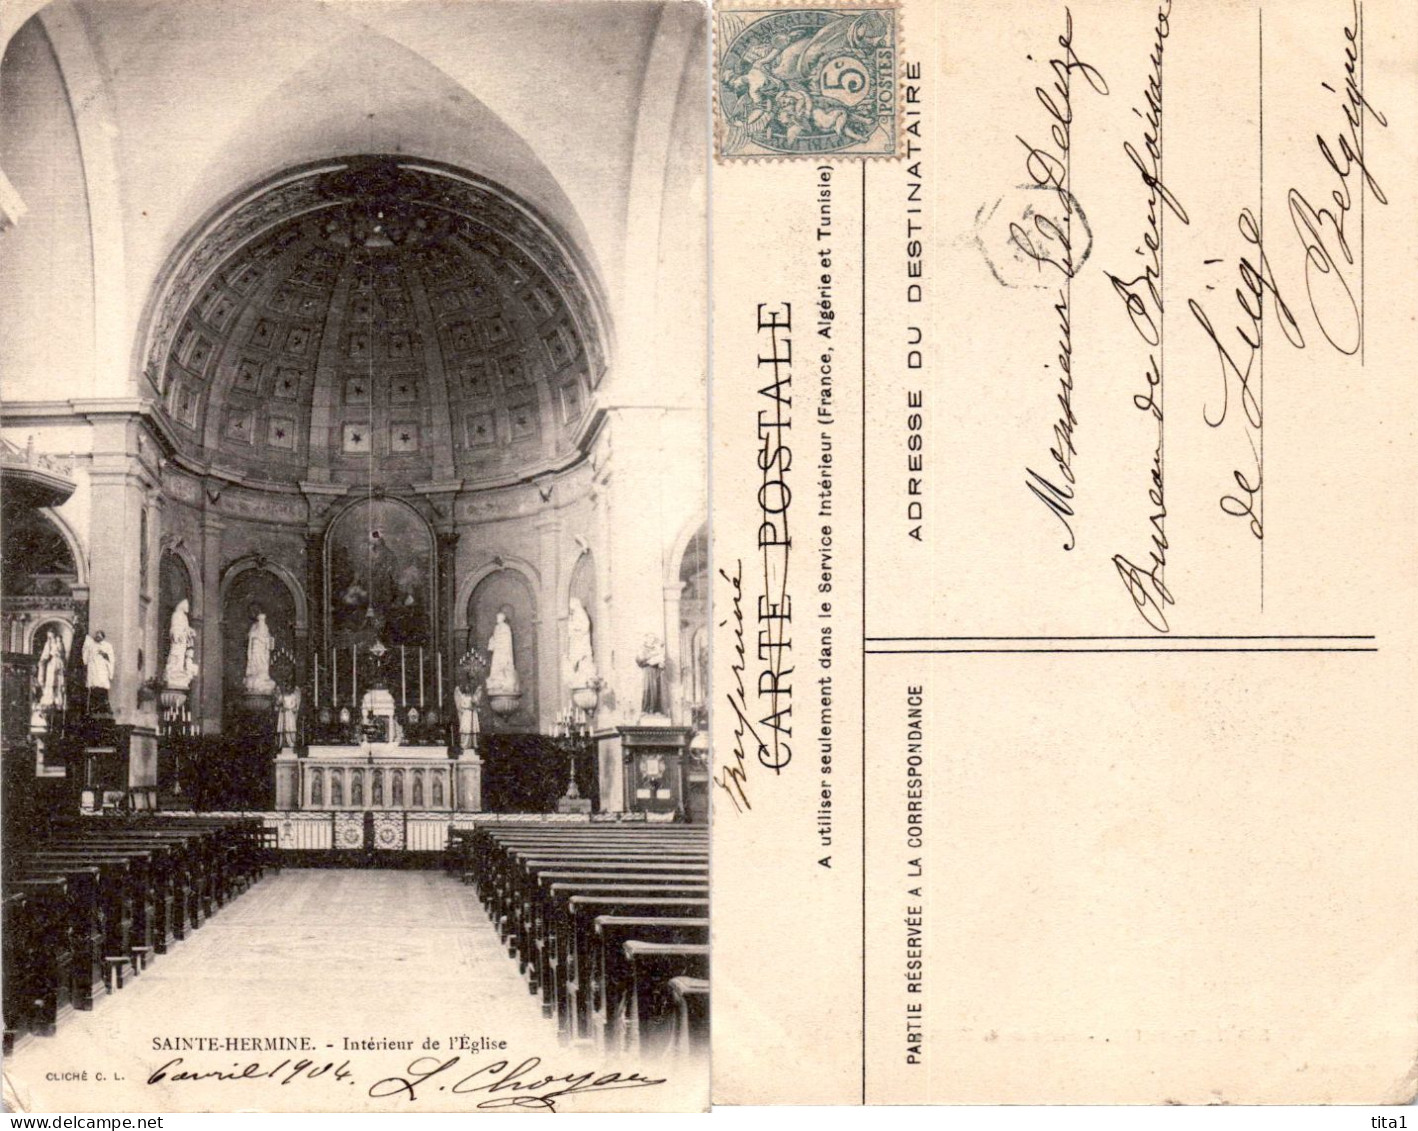 SAINTE-HERMINE. - Intérieur de l'Église
CLICHÉ C. L.
6 avril 1904. L. Choyau
RÉPUBLIQUE FRANÇAISE
5c
POSTES
Imprimé
CARTE POSTALE
A utiliser seulement dans le Service Intérieur (France, Algérie et Tunisie)
ADRESSE DU DESTINATAIRE
Monsieur Delize
Bureau de Bienfaisance
de Liège
Belgique
PARTIE RÉSERVÉE A LA CORRESPONDANCE
tita1